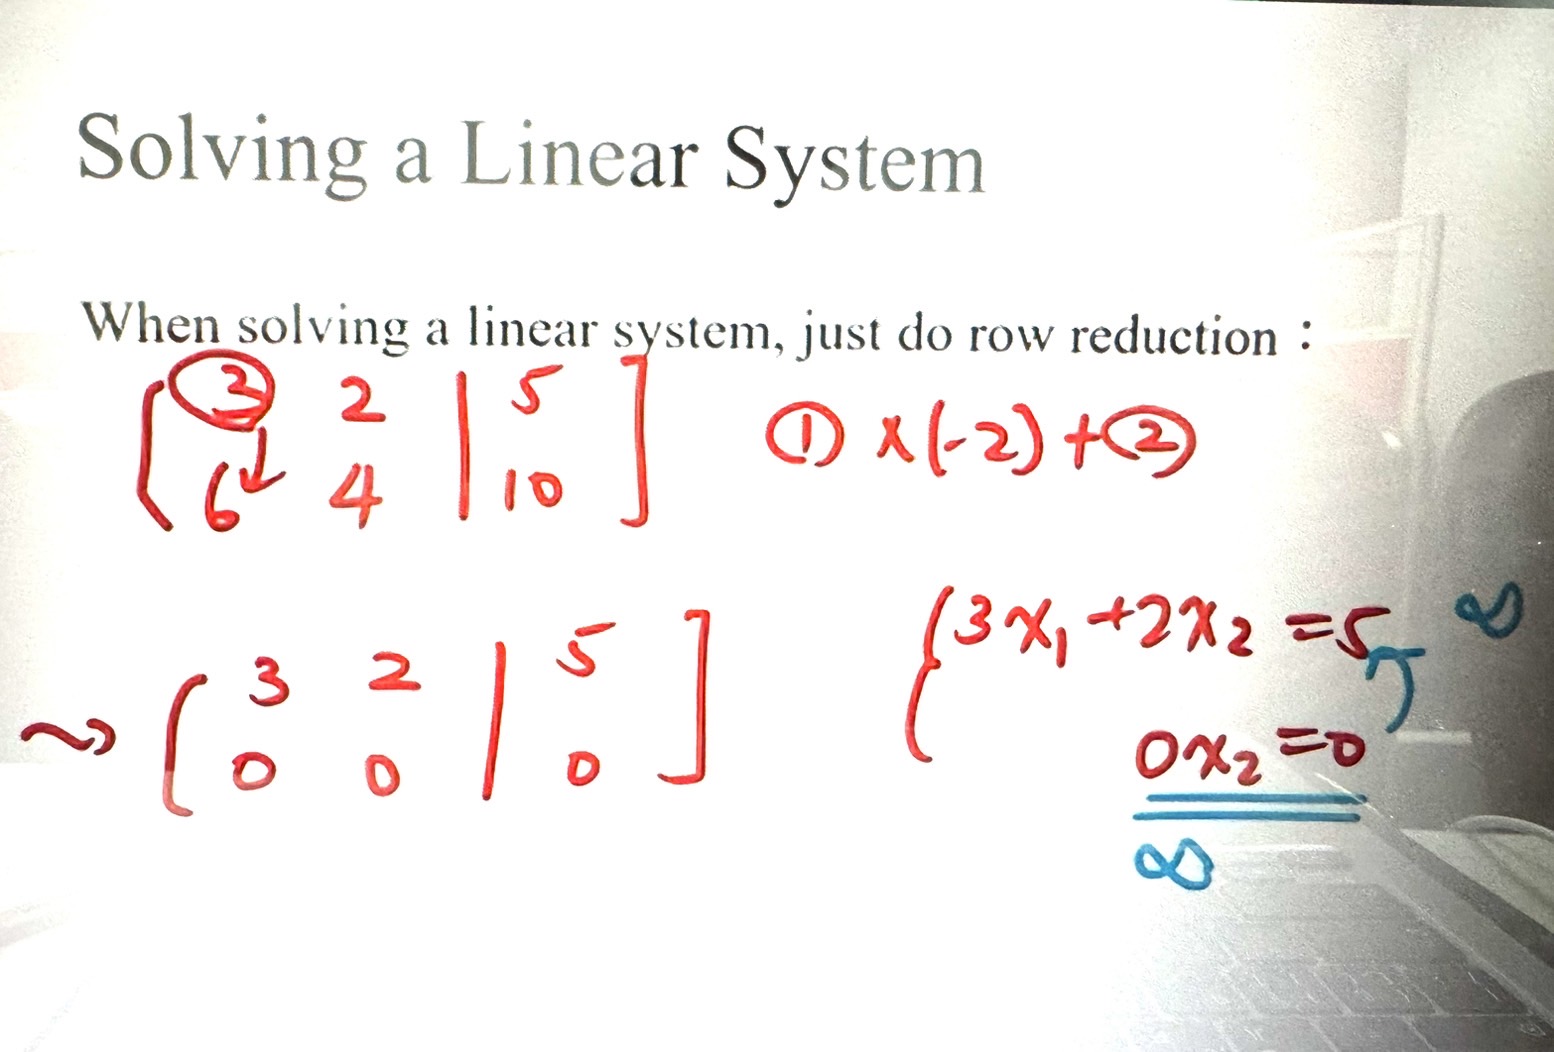 Solving a Linear System
When solving a linear system, just do row reduction：
[3 2 | 5]
[6 4 | 10]
① x(-2)+②
~> [3 2 | 5]
[0 0 | 0]
{3x₁+2x₂=5 ∞
0x₂=0
∞